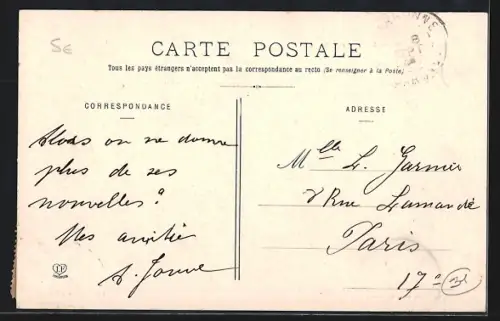 5E
CARTE POSTALE
Tous les pays étrangers n'acceptent pas la correspondance au recto (Se renseigner à la Poste)
CORRESPONDANCE
ADRESSE
Alors on ne donne
plus de ses
nouvelles ?
Mes amitiés
Mlle L. Garnier
8 Rue Lamandé
Paris
17e